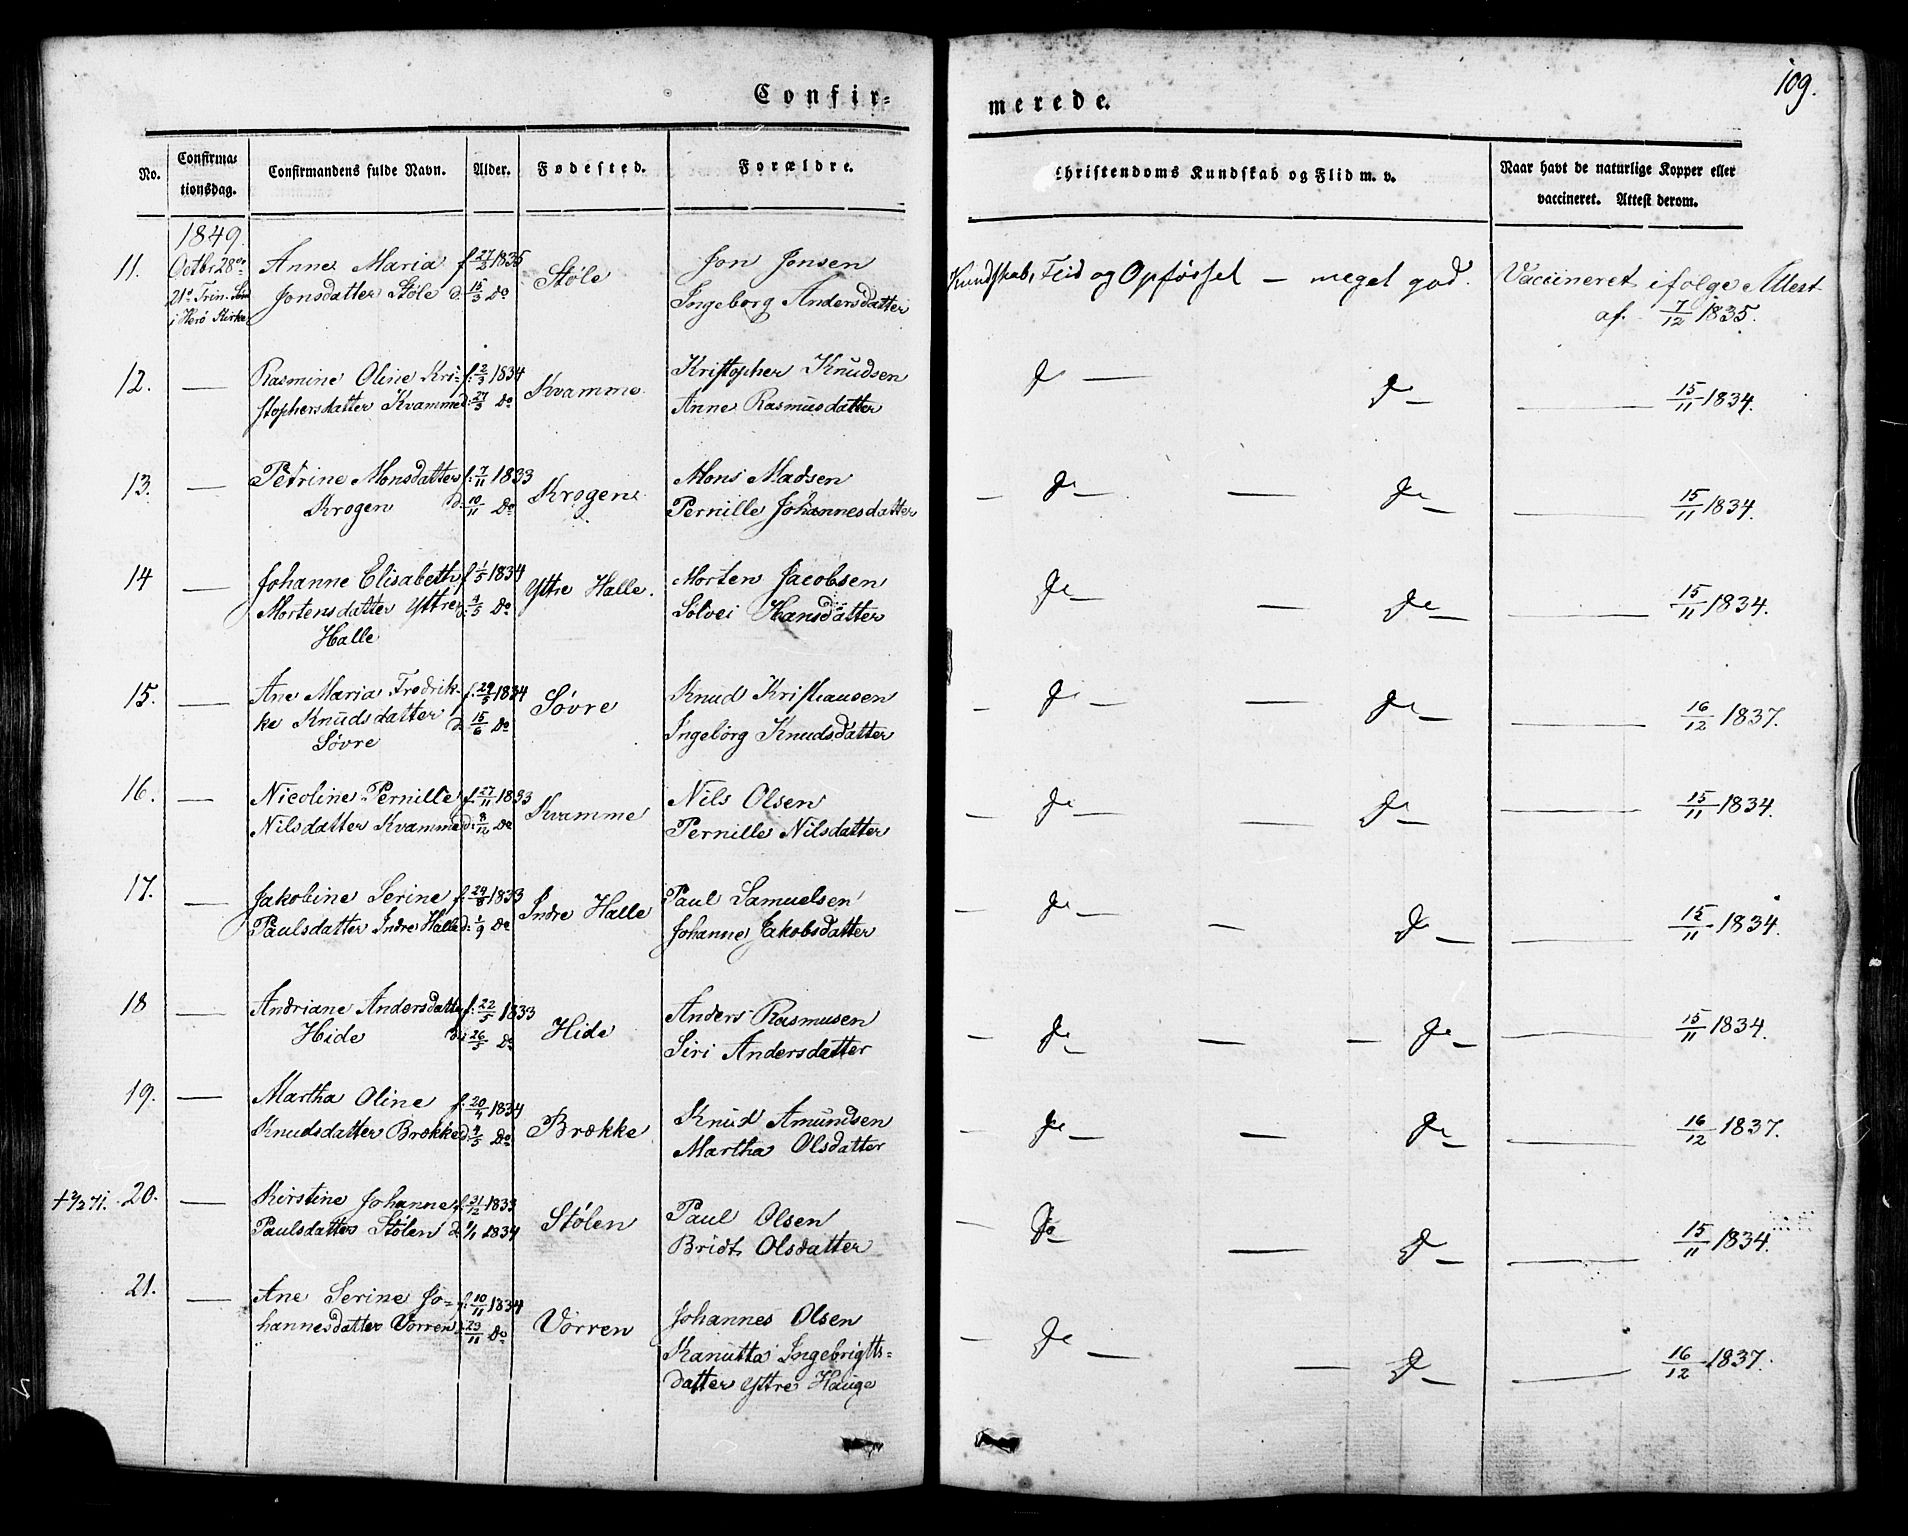 Confir=
merede.
109.
No.
Confirma=
tionsdag.
Confirmandens fulde Navn.
Alder.
Fødested.
Forældre.
Christendoms Kundskab og Flid m. v.
Naar havt de naturlige Kopper eller
vaccineret. Attest derom.
1849.
11. Octbr 28de Anne Maria f. 27/2 1835 Støle Jon Jonsen Kundskab, Flid og Opførsel — meget god. Vaccineret ifølge Attest
21de Trin. Sønd Jonsdatter Støle d. 15/3 Do Ingeborg Andersdatter af 7/12 1835.
i Herø Kirke
12. — Rasmine Oline Kri= f. 2/3 1834 Kvamme Kristopher Knudsen Do — Do — — 15/11 1834.
stophersdatter Kvamme d. 27/3 Do Anne Rasmusdatter
13. — Petrine Monsdatter f. 7/11 1833 Krogen Mons Madsen — Do — — Do — — 15/11 1834.
Krogen d. 10/11 Do Pernille Johannesdatter
14 — Johanne Elisabeth f. 1/5 1834 Yttre Halle. Morten Jacobsen Do — — Do — — 15/11 1834.
Mortensdatter Yttre d. 4/5 Do Solvei Hansdatter
Halle
15. — Ane Maria Fredrik- f. 29/5 1834 Søvre Knud Kristiansen — Do — — Do — — 16/12 1837.
ke Knudsdatter d. 15/6 Do Ingeborg Knudsdatter
Søvre
16. — Nicoline Pernille f. 27/11 1833 Kvamme Nils Olsen — Do — — Do — — 15/11 1834.
Nilsdatter Kvamme d. 8/12 Do Pernille Nilsdatter
17. — Jakobine Serine f. 24/8 1833 Indre Halle Paul Samuelsen — Do — — Do — — 15/11 1834.
Paulsdatter Indre Halle d. 1/9 Do Johanne Jakobsdatter
18 — Andriane Andersdatter f. 22/5 1833 Hide Anders Rasmusen — Do — — — Do — — 15/11 1834.
Hide d. 26/5 Do Siri Andersdatter
19. — Martha Oline f. 20/4 1834 Brække Knud Amundsen — Do — — Do — — 16/12 1837.
Knudsdatter Brække d. 4/5 Do Martha Olsdatter
20. — Kirstine Johanne f. 21/12 1833 Stølen Paul Olsen — Do — — Do — — 15/11 1834.
Paulsdatter Stølen d. 1/1 1834 Bridt Olsdatter
21. — Ane Serine Jo= f. 10/11 1834 Vorren Johannes Olsen — Do — — Do — — 16/12 1837.
hannesdatter Vorren d. 23/11 Do Kanutta Ingebrigtts=
datter Yttre Hauge